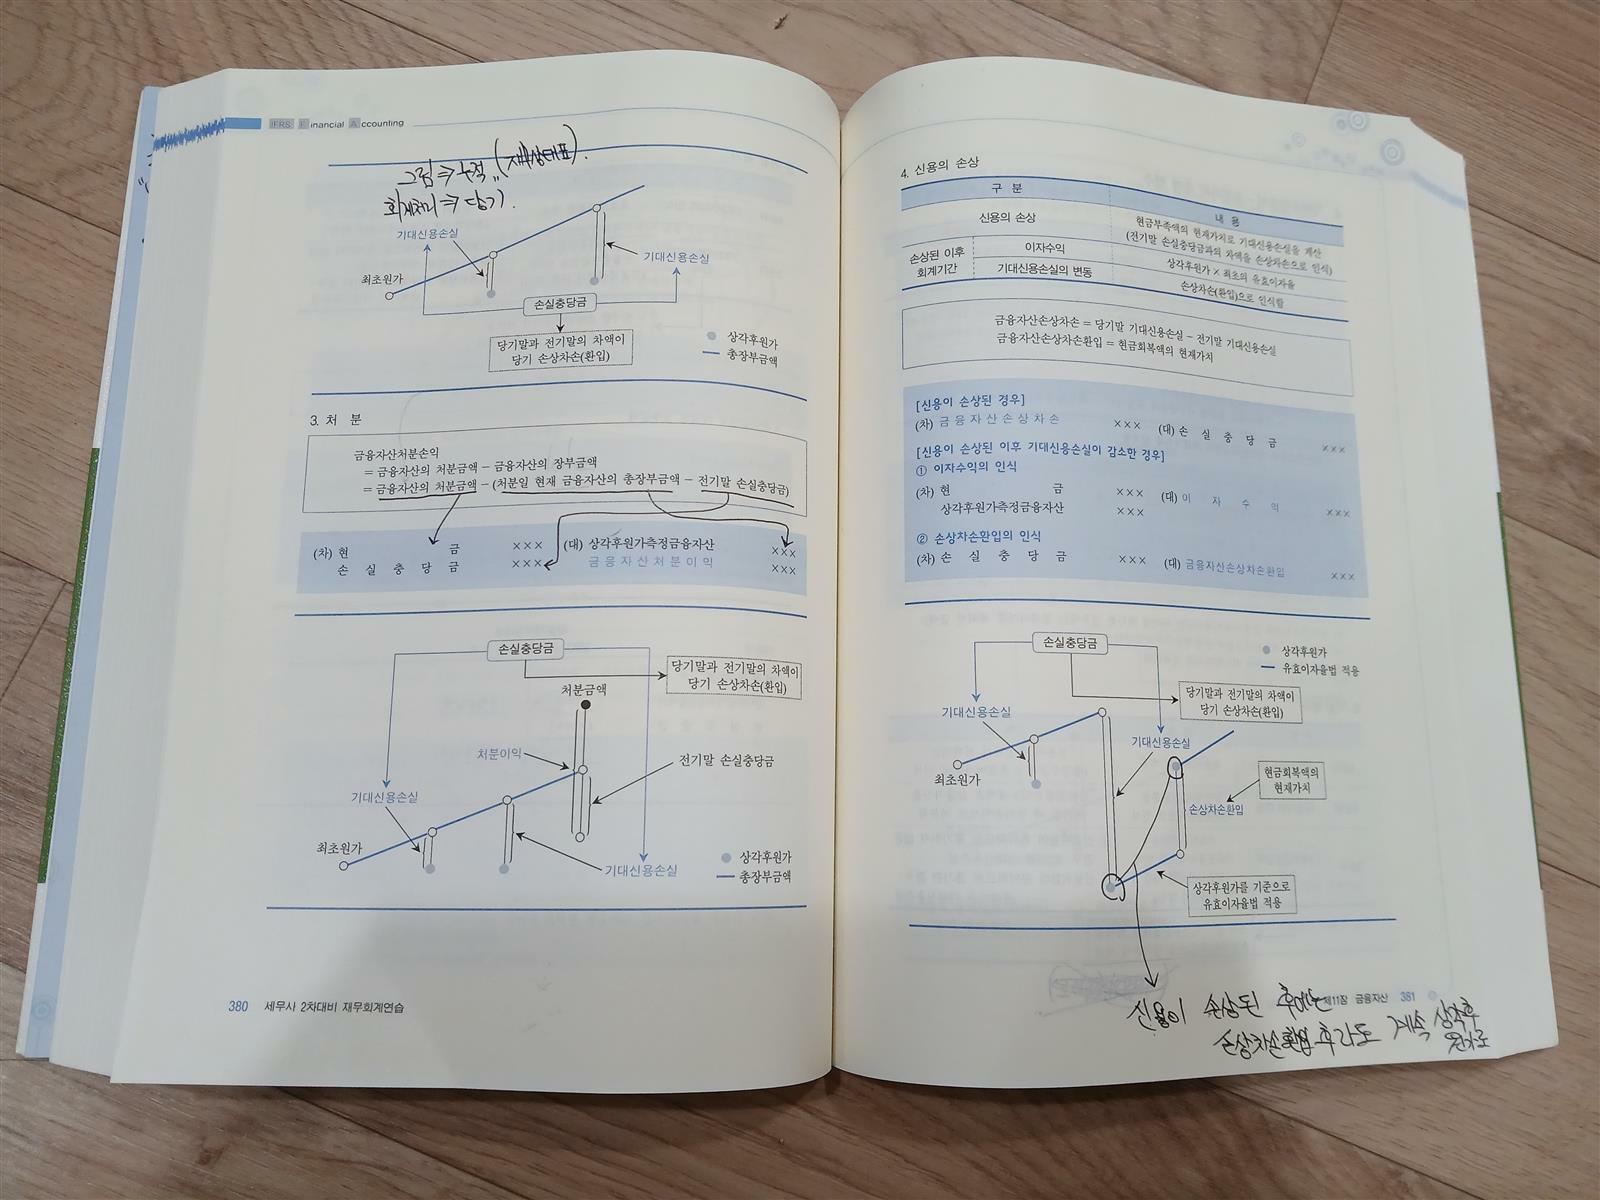 IFRS Financial Accounting
그림 ⇒ 누적 (재무상태표).
회계처리 ⇒ 당기.
기대신용손실
기대신용손실
최초원가
손실충당금
당기말과 전기말의 차액이
당기 손상차손(환입)
상각후원가
총장부금액
3. 처 분
금융자산처분손익
= 금융자산의 처분금액 - 금융자산의 장부금액
= 금융자산의 처분금액 - (처분일 현재 금융자산의 총장부금액 - 전기말 손실충당금)
(차) 현 금 ××× (대) 상각후원가측정금융자산 ×××
손 실 충 당 금 ××× 금융자산처분이익 ×××
손실충당금
당기말과 전기말의 차액이
당기 손상차손(환입)
처분금액
처분이익
전기말 손실충당금
기대신용손실
최초원가
기대신용손실
상각후원가
총장부금액
380 세무사 2차대비 재무회계연습
4. 신용의 손상
구 분 내 용
신용의 손상 현금부족액의 현재가치로 기대신용손실을 계산
(전기말 손실충당금과의 차액을 손상차손으로 인식)
손상된 이후 회계기간 이자수익 상각후원가 × 최초의 유효이자율
기대신용손실의 변동 손상차손(환입)으로 인식함
금융자산손상차손 = 당기말 기대신용손실 - 전기말 기대신용손실
금융자산손상차손환입 = 현금회복액의 현재가치
[신용이 손상된 경우]
(차) 금융자산손상차손 ××× (대) 손 실 충 당 금 ×××
[신용이 손상된 이후 기대신용손실이 감소한 경우]
① 이자수익의 인식
(차) 현 금 ××× (대) 이 자 수 익 ×××
상각후원가측정금융자산 ×××
② 손상차손환입의 인식
(차) 손 실 충 당 금 ××× (대) 금융자산손상차손환입 ×××
손실충당금
상각후원가
유효이자율법 적용
당기말과 전기말의 차액이
당기 손상차손(환입)
기대신용손실
기대신용손실
최초원가
현금회복액의
현재가치
손상차손환입
상각후원가를 기준으로
유효이자율법 적용
제11장 금융자산 381
신용이 손상된 후에는
손상차손환입 후라도 계속 상각후
원가로